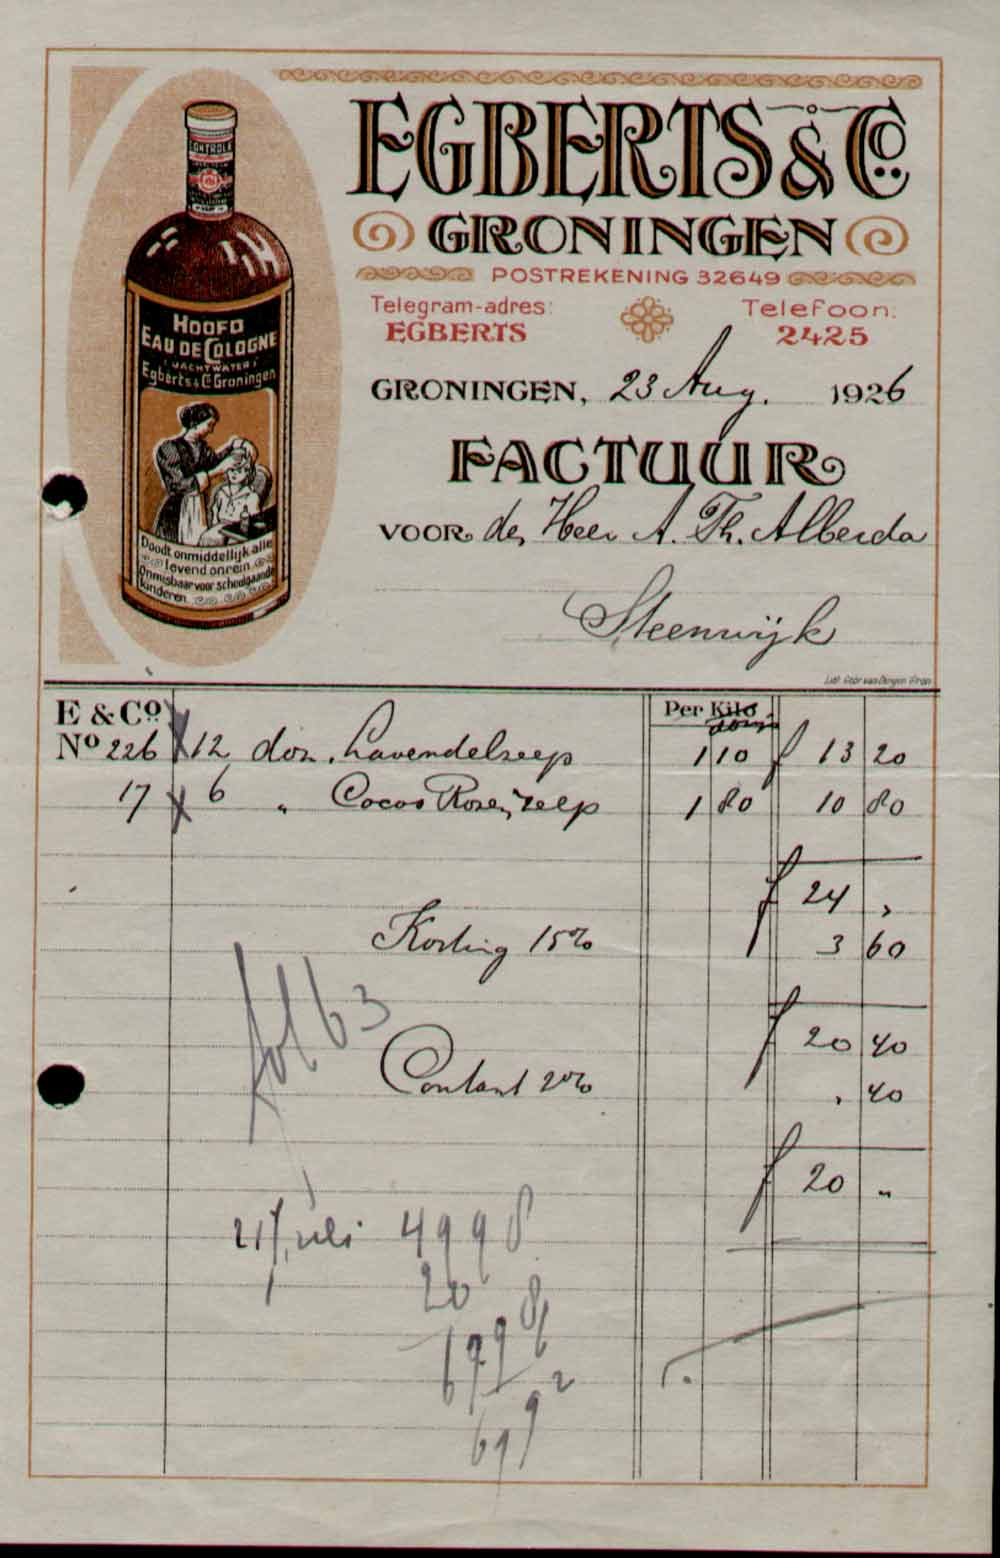 EGBERTS & Co.
GRONINGEN
POSTREKENING 32649
Telegram-adres: Telefoon:
EGBERTS 2425
GRONINGEN, 23 Aug. 1926
FACTUUR
VOOR den Heer A. Th. Alberda
Steenwijk
CONTROLE
HOOFD
EAU DE COLOGNE
(JACHTWATER)
Egberts & Co. Groningen
Doodt onmiddellijk alle
levend onrein.
Onmisbaar voor schoolgaande
kinderen.
E & Co. Per Kilo
dozijn
No 226 12 doz. Lavendelzeep 1 10 f 13 20
17 6 " Cocos Rozenzeep 1 80 10 80
f 24 "
Korting 15% 3 60
fol 63
f 20 40
Contant 2% " 40
f 20 "
21 Juli 49 98
20